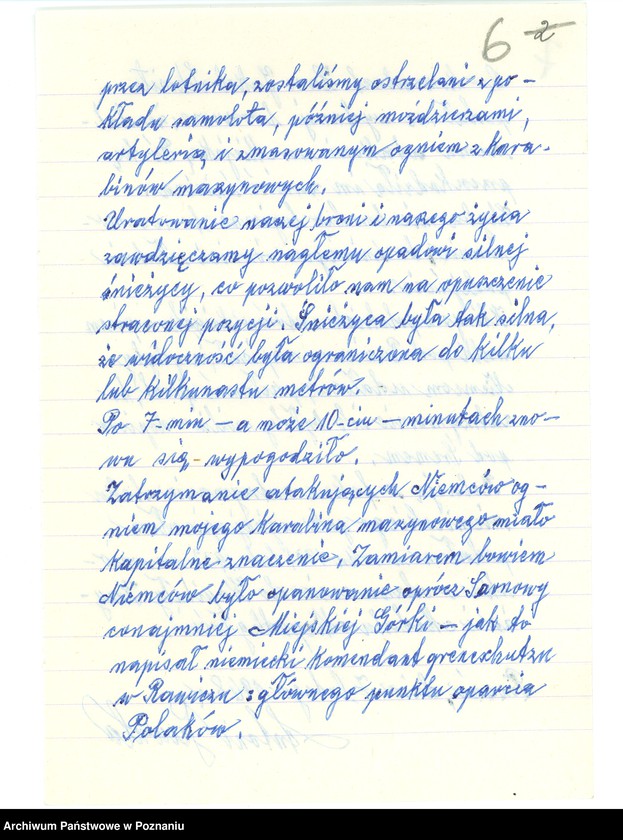 6 2
przez lotnika, zostaliśmy ostrzelani z po-
kładu samolota, później moździeżami,
artylerią i zmasowanym ogniem z kara-
binów maszynowych.
Uratowanie naszej broni i naszego życia
zawdzięczamy nagłemu opadowi silnej
śnieżycy, co pozwoliło nam na opuszczenie
straconej pozycji. Śnieżyca była tak silna,
że widoczność była ograniczona do kilku
lub kilkunastu metrów.
Po 7-min - a może 10-ciu - minutach zno-
wu się - wypogodziło.
Zatrzymanie atakujących Niemców og-
niem mojego karabina maszynowego miało
kapitalne znaczenie. Zamiarem bowiem
Niemców było opanowanie oprócz Sarnowy
conajmniej Miejskiej Górki - jak to
napisał niemiecki komendant grenzschutzu
w Rawiczu z głównego punktu oparcia
Polaków.
Archiwum Państwowe w Poznaniu